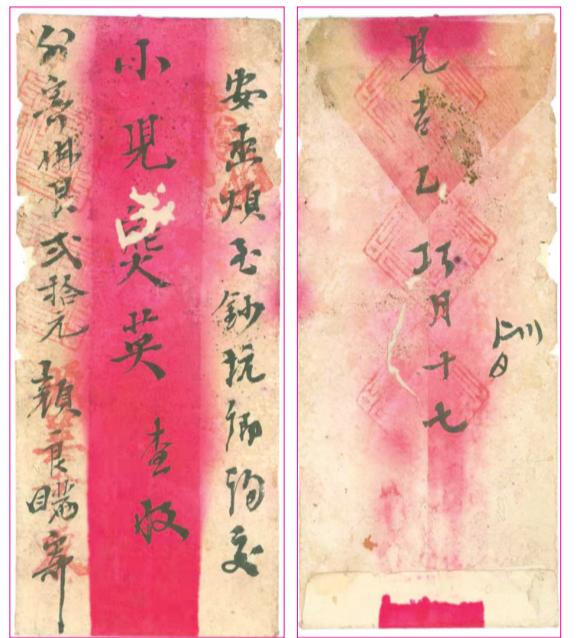 安煩至鈔坑鄉交
小兒英 查收
外寄佛艮弍拾元 顏良瞞寄
見吉乙巧月十七